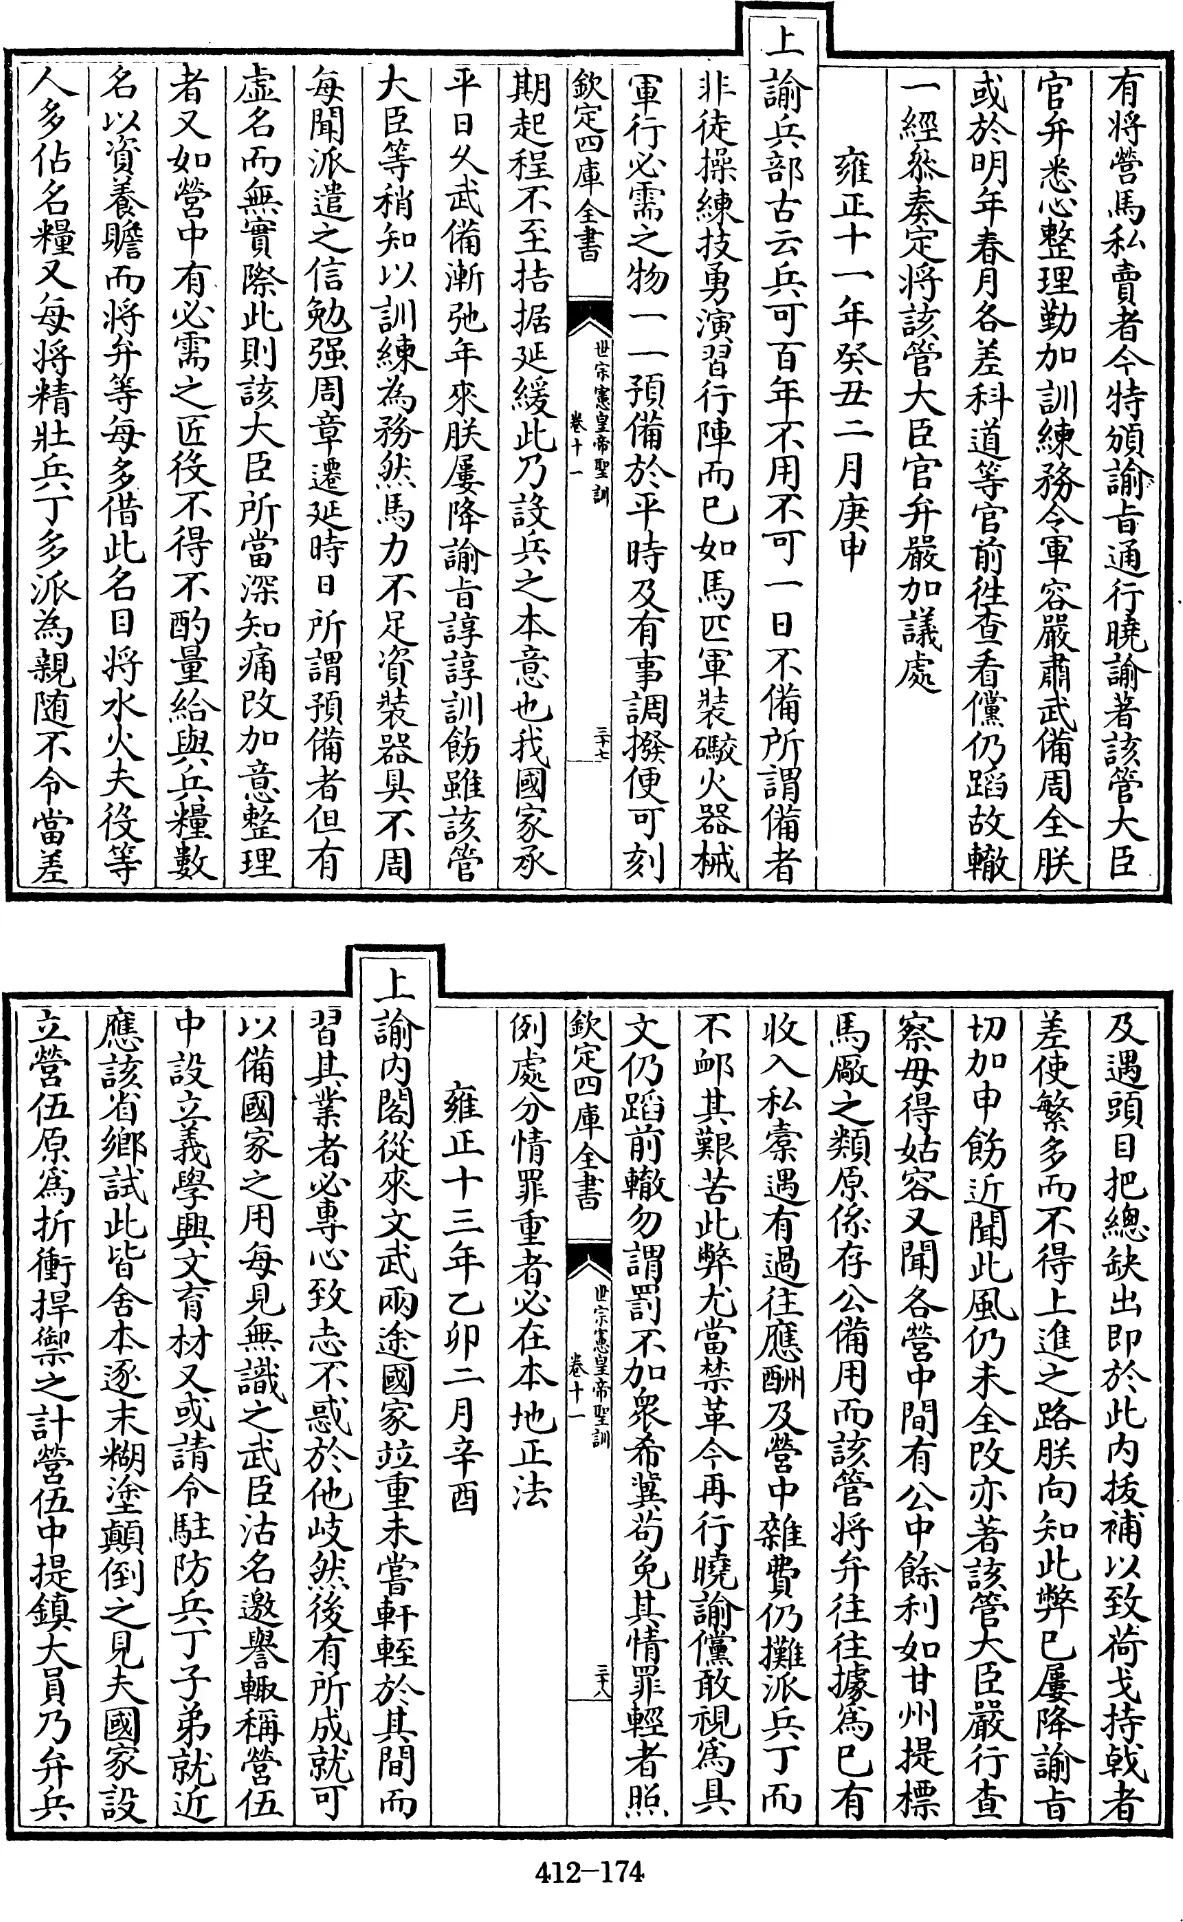 有將營馬私賣者今特頒諭旨通行曉諭著該管大臣
官弁悉心整理勤加訓練務令軍容嚴肅武備周全朕
或於明年春月各差科道等官前徃查看儻仍蹈故轍
一經叅奏定將該管大臣官弁嚴加議處
雍正十一年癸丑二月庚申
上諭兵部古云兵可百年不用不可一日不備所謂備者
非徒操練技勇演習行陣而已如馬匹軍裝礮火器械
軍行必需之物一一預備於平時及有事調撥便可刻
欽定四庫全書
世宗憲皇帝聖訓
卷十一
三十七
期起程不至拮据延緩此乃設兵之本意也我國家承
平日久武備漸弛年來朕屢降諭旨諄諄訓飭雖該管
大臣等稍知以訓練為務然馬力不足資裝器具不周
每聞派遣之信勉强周章遷延時日所謂預備者但有
虛名而無實際此則該大臣所當深知痛改加意整理
者又如營中有必需之匠役不得不酌量給與兵糧數
名以資養贍而將弁等每多借此名目將水火夫役等
人多佔名糧又每將精壯兵丁多派為親隨不令當差
及遇頭目把總缺出即於此內拔補以致荷戈持戟者
差使繁多而不得上進之路朕向知此弊已屢降諭旨
切加申飭近聞此風仍未全改亦著該管大臣嚴行查
察毋得姑容又聞各營中間有公中餘利如甘州提標
馬廠之類原係存公備用而該管將弁往往據為已有
收入私橐遇有過往應酬及營中雜費仍攤派兵丁而
不䘏其艱苦此弊尤當禁革今再行曉諭儻敢視為具
文仍蹈前轍勿謂罰不加衆希冀苟免其情罪輕者照
欽定四庫全書
世宗憲皇帝聖訓
卷十一
三十八
例處分情罪重者必在本地正法
雍正十三年乙卯二月辛酉
上諭內閣從來文武兩途國家竝重未嘗軒輊於其間而
習其業者必專心致志不惑於他岐然後有所成就可
以備國家之用每見無識之武臣沽名邀譽輙稱營伍
中設立義學興文育材又或請令駐防兵丁子弟就近
應該省鄉試此皆舍本逐末糊塗顛倒之見夫國家設
立營伍原為折衝捍禦之計營伍中提鎮大員乃弁兵
412-174